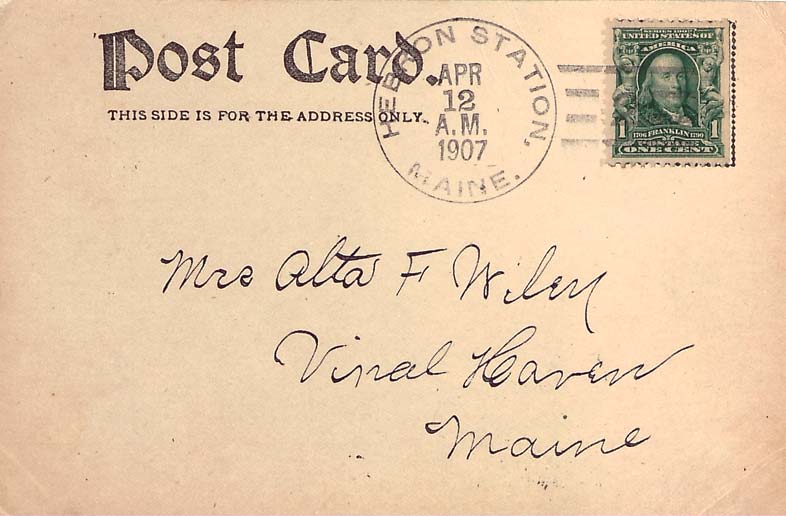 Post Card.
THIS SIDE IS FOR THE ADDRESS ONLY.
HEBRON STATION,
APR
12
A.M.
1907
MAINE.
SERIES 1902
UNITED STATES OF
AMERICA
1 1706 FRANKLIN 1790 1
POSTAGE
ONE CENT
Mrs Alta F Wiley
Vinal Haven
Maine